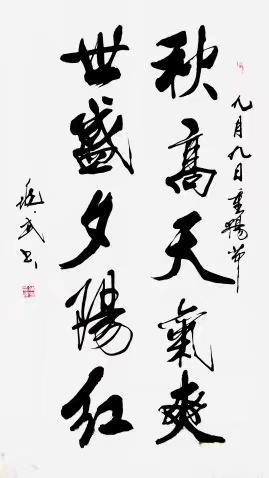 九月九日重陽節
秋高天氣爽
世盛夕陽紅
武书